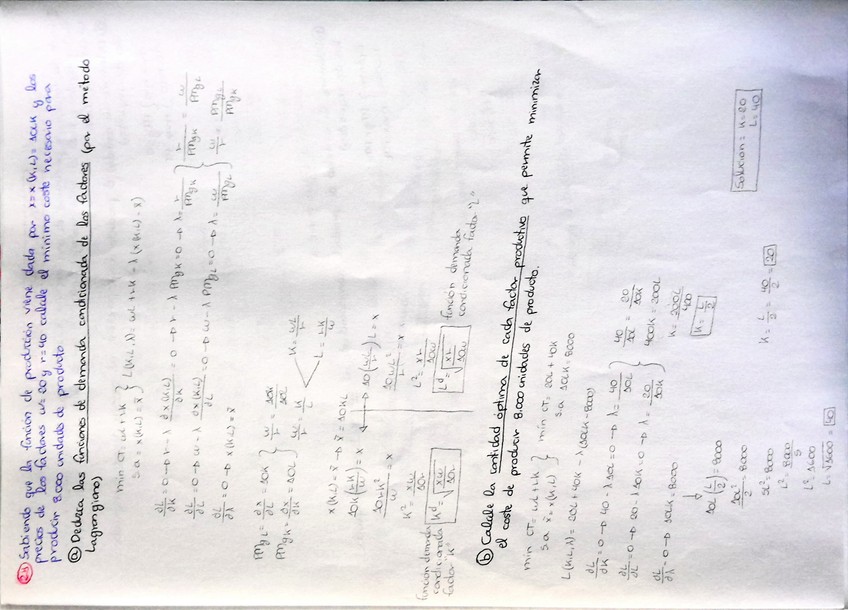 24 Sabiendo que la función de producción viene dada por x = x(K,L) = 10LK y los
precios de los factores w=20 y r=40 calcule el mínimo coste necesario para
producir 8.000 unidades de producto
a) Deduzca las funciones de demanda condicionada de los factores (por el método
Lagrangiano)
min CT = wL + rK
s.a = x(K,L) = x̄ } L(K,L,λ) = wL + rK - λ(x(K,L) - x̄)
∂L/∂K = 0 → r - λ ∂x(K,L)/∂K = 0 → r - λ PMgK = 0 → λ = r/PMgK } r/PMgK = w/PMgL
∂L/∂L = 0 → w - λ ∂x(K,L)/∂L = 0 → w - λ PMgL = 0 → λ = w/PMgL } w/r = PMgL/PMgK
∂L/∂λ = 0 → x(K,L) = x̄
PMgL = ∂x/∂L = 10K } w/r = 10K/10L
PMgK = ∂x/∂K = 10L } w/r = K/L
K = wL/r
L = rK/w
x(K,L) = x̄ → x̄ = 10KL
10K(rK/w) = x
10(wL/r)L = x
10rK²/w = x
10wL²/r = x
K² = xw/10r
L² = xr/10w
función demanda condicionada factor "K"
K^d = √(xw/10r)
L^d = √(xr/10w)
función demanda condicionada factor "L"
b) Calcule la cantidad óptima de cada factor productivo que permite minimizar
el coste de producir 8.000 unidades de producto.
min CT = wL + rK } min CT = 20L + 40K
s.a x̄ = x(K,L) } s.a 10LK = 8000
L(K,L,λ) = 20L + 40K - λ(10LK - 8000)
∂L/∂K = 0 → 40 - λ10L = 0 → λ = 40/10L } 40/10L = 20/10K
∂L/∂L = 0 → 20 - λ10K = 0 → λ = 20/10K } 400K = 200L
∂L/∂λ = 0 → 10LK = 8000
K = 200L/400
K = L/2
10L(L/2) = 8000
10L²/2 = 8000
5L² = 8000
L² = 8000/5
L² = 1600
L = √1600 = 40
K = L/2 = 40/2 = 20
Solución = K=20
L=40